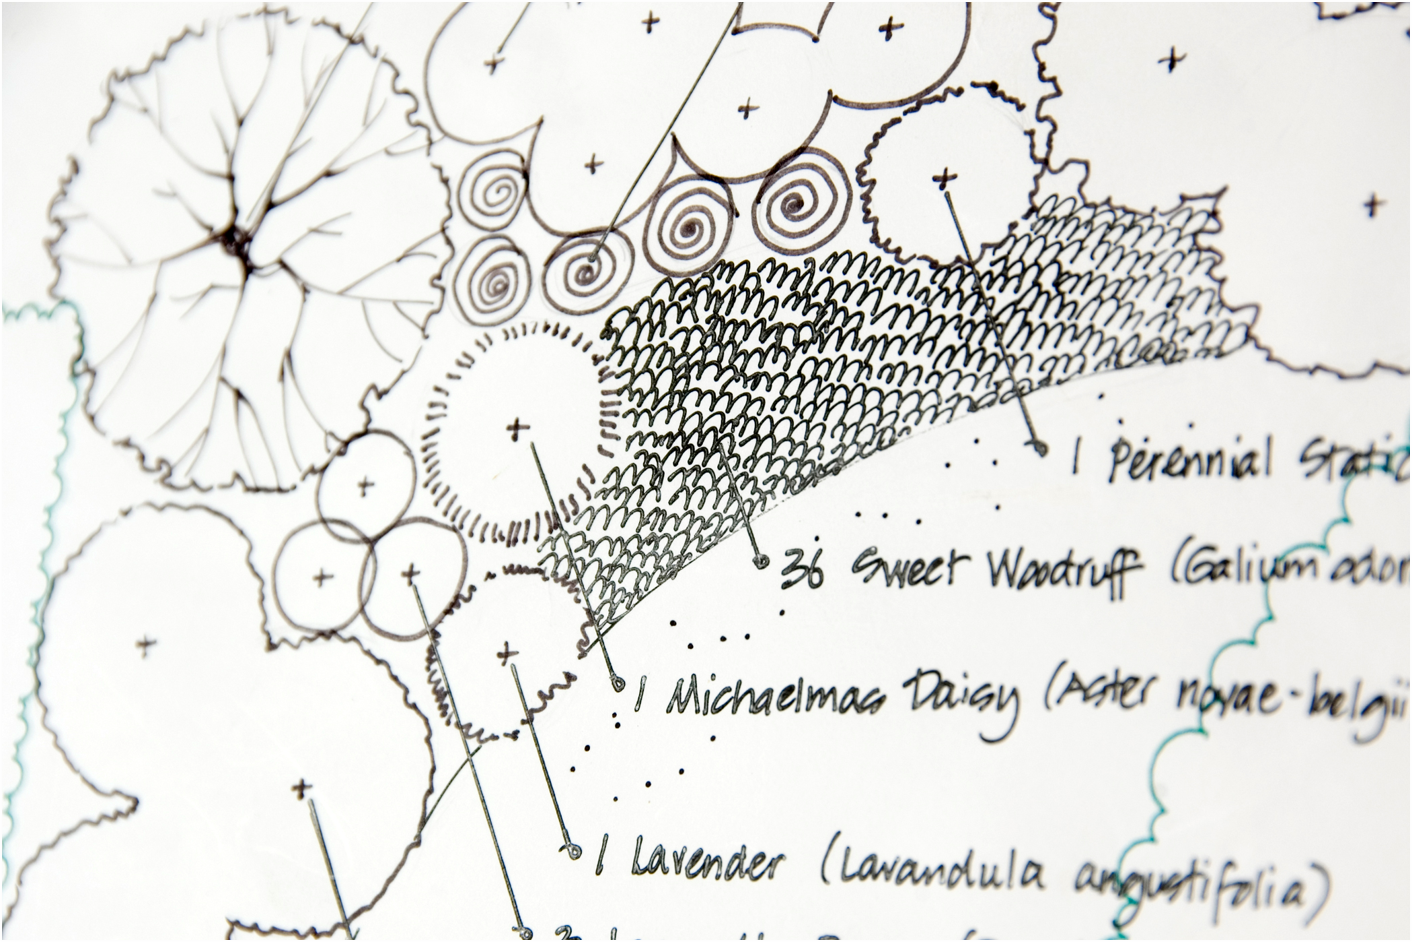 1 Perennial Static
36 Sweet Woodruff (Galium odor
1 Michaelmas Daisy (Aster novae-belgii
1 Lavender (Lavandula angustifolia)
3